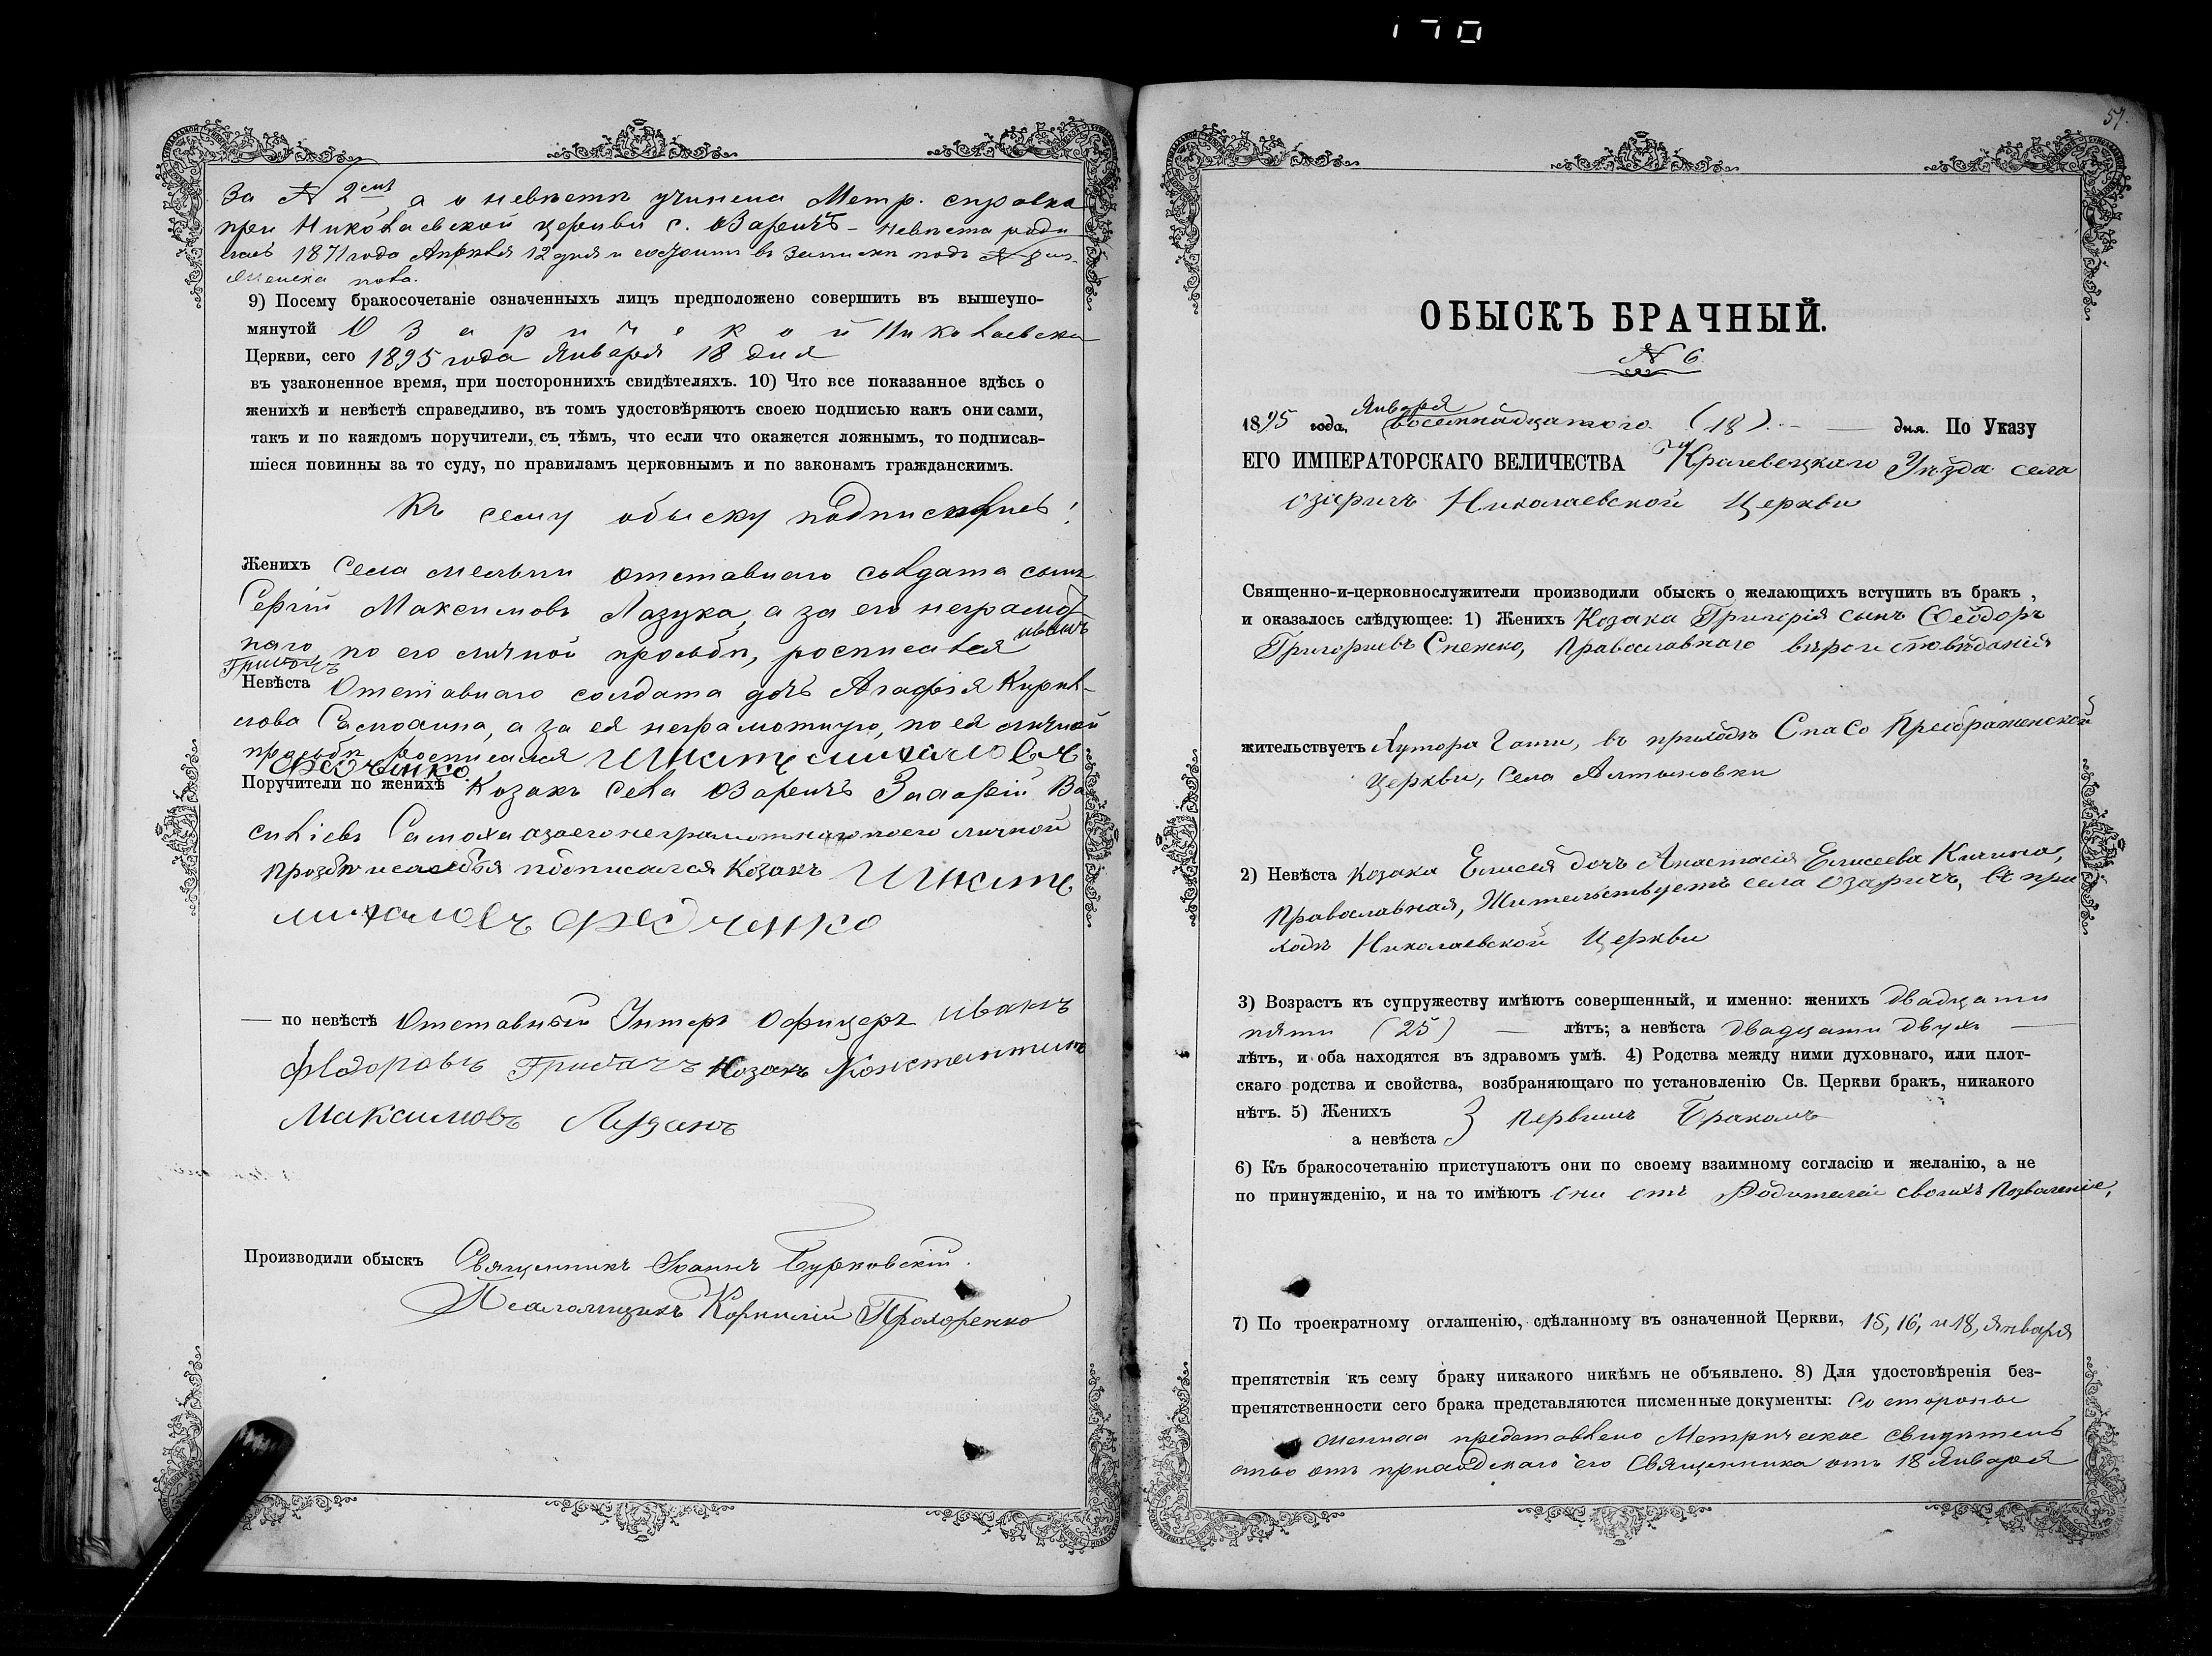 170
За № 2мъ, а о невѣстѣ учинена Метр. справка
при Николаевской церкви с. Озаричъ – невѣста роди
лась 1871 года Апрѣля 12 дня и состоитъ въ записки подъ № 8
женска пола.
9) Посему бракосочетаніе означенныхъ лицъ предположено совершить въ вышеупо-
мянутой Озаричской Николаевской
Церкви, сего 1895 года Января 18 дня
въ узаконенное время, при постороннихъ свидѣтеляхъ. 10) Что все показанное здѣсь о
женихѣ и невѣстѣ справедливо, въ томъ удостовѣряютъ своею подписью какъ они сами,
такъ и по каждомъ поручители, съ тѣмъ, что если что окажется ложнымъ, то подписав-
шіеся повинны за то суду, по правиламъ церковнымъ и по законамъ гражданскимъ.
Къ сему обыску подписались:
Женихъ Села Мельни отставнаго солдата сынъ
Сергій Максимовъ Лазука, а за его неграмот
наго по его личной просьбѣ, росписался Иванъ
Грибачъ
Невѣста Отставнаго солдата дочь Агафія Кирил-
лова, а за ея неграмотную, по ея личной
просьбѣ росписался Игнатъ михаловъ
Федченко
Поручители по женихѣ Козакъ Села Озаричъ Захарій Ва
силіевъ Самоха азаего неграмотнаго поего личной
прозбѣ подписался Козакъ Игнатъ
михаловъ Федченко
— по невѣстѣ Отставный Унтеръ Офицеръ Иванъ
Федоровъ Грибачъ Козакъ Константинъ
Максимовъ Лузанъ
Производили обыскъ Священникъ Іоаннъ Бурковскій.
Псаломщикъ Корнилій Прохоренко
57.
ОБЫСКЪ БРАЧНЫЙ.
№ 6
Января
1895 года, восемнадцатого (18) — — дня. По Указу
ЕГО ИМПЕРАТОРСКАГО ВЕЛИЧЕСТВА Кролевецкаго Уѣзда села
Озаричъ Николаевской Церкви
Священно-и-церковнослужители производили обыскъ о желающихъ вступить въ бракъ,
и оказалось слѣдующее: 1) Женихъ Козака Григорія сынъ Ѳеодоръ
Григорьевъ, Православнаго вѣроисповѣданія
жительствуетъ Хутора Гати, въ приходѣ Спасо Преображенской
Церкви, Села Алтыновки
2) Невѣста Козака Елисея дочь Анастасія Елисеева,
Православная, Жительствуетъ села Озаричъ, въ при
ходѣ Николаевской Церкви
3) Возрастъ къ супружеству имѣютъ совершенный, и именно: женихъ двадцати
пяти (25) — лѣтъ; а невѣста двадцати двухъ —
лѣтъ, и оба находятся въ здравомъ умѣ. 4) Родства между ними духовнаго, или плот-
скаго родства и свойства, возбраняющаго по установленію Св. Церкви бракъ, никакого
нѣтъ. 5) Женихъ
а невѣста } первымъ Бракомъ
6) Къ бракосочетанію приступаютъ они по своему взаимному согласію и желанію, а не
по принужденію, и на то имѣютъ они отъ Родителей своихъ позволеніе,
7) По троекратному оглашенію, сдѣланному въ означенной Церкви, 15, 16, и 18, Января
препятствія къ сему браку никакого никѣмъ не объявлено. 8) Для удостовѣренія без-
препятственности сего брака представляются писменные документы: Со стороны
жениха представлено Метрическое свидѣтель
ство отъ приходскаго его Священника отъ 18 Января